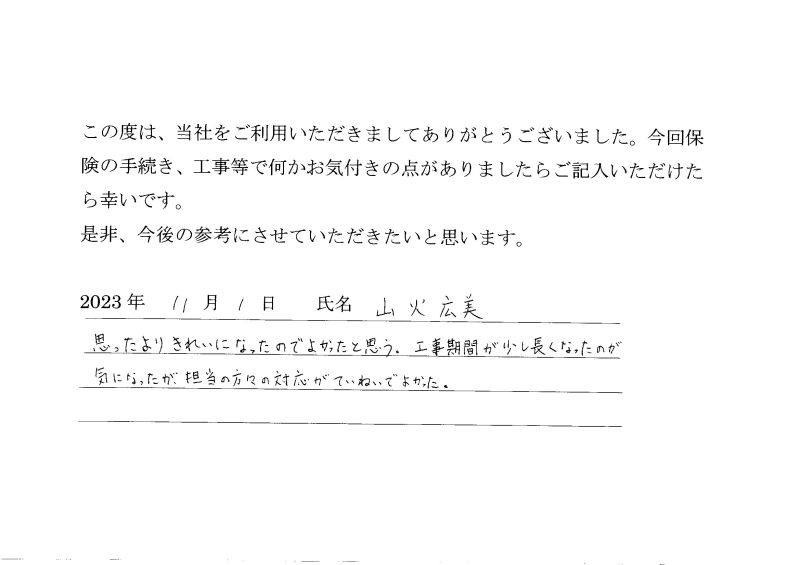 この度は、当社をご利用いただきましてありがとうございました。今回保
険の手続き、工事等で何かお気付きの点がありましたらご記入いただけた
ら幸いです。
是非、今後の参考にさせていただきたいと思います。
2023年 11月 1日 氏名 山火広美
思ったよりきれいになったのでよかったと思う。工事期間が少し長くなったのが
気になったが、担当の方々の対応がていねいでよかった。